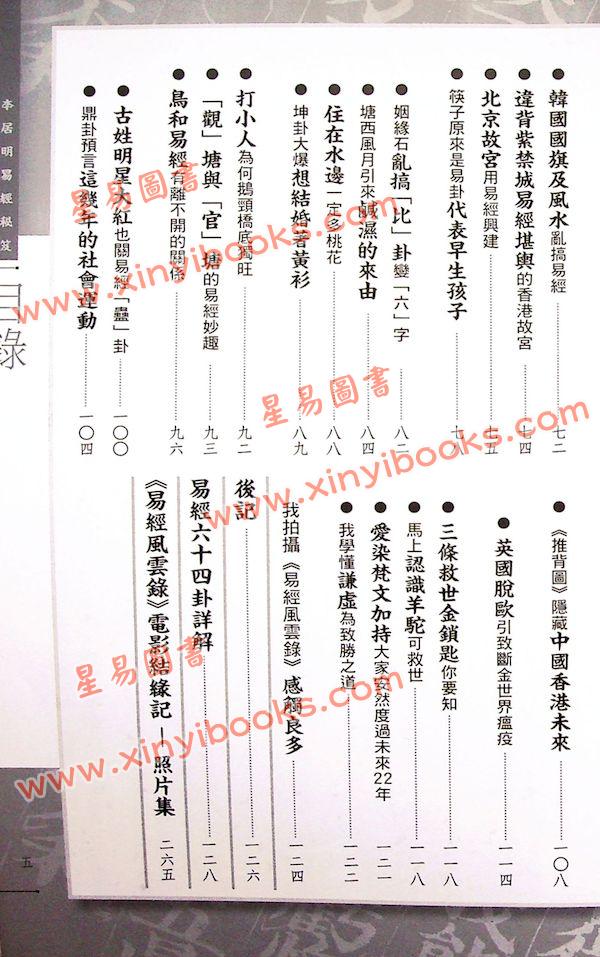 李居明易經秘笈
目錄
● 韓國國旗及風水亂搞易經 七二
● 違背紫禁城易經堪輿的香港故宮 七四
● 北京故宮用易經興建 七五
● 筷子原來是易卦代表早生孩子 七八
● 姻緣石亂搞「比」卦變「六」字 八二
● 塘西風月引來鹹濕的來由 八四
● 住在水邊一定多桃花 八八
● 坤卦大爆想結婚著黃衫 八九
● 打小人為何鵝頸橋底獨旺 九二
● 「觀」塘與「官」塘的易經妙趣 九三
● 鳥和易經有離不開的關係 九六
● 古姓明星大紅也關易經「蠱」卦 一〇〇
● 鼎卦預言這幾年的社會運動 一〇四
● 《推背圖》隱藏中國香港未來 一〇八
● 英國脫歐引致斷金世界瘟疫 一一四
● 三條救世金鎖匙你要知 一一八
● 馬上認識羊駝可救世 一一八
● 愛染梵文加持大家安然度過未來22年 一二一
● 我學懂謙虛為致勝之道 一二二
我拍攝《易經風雲錄》感觸良多 一二四
後記 一二六
易經六十四卦詳解 一二八
《易經風雲錄》電影結緣記—照片集 二六五
五
星易圖書
www.xinyibooks.com
星易圖書
www.xinyibooks.com
星易圖書
www.xinyibooks.com